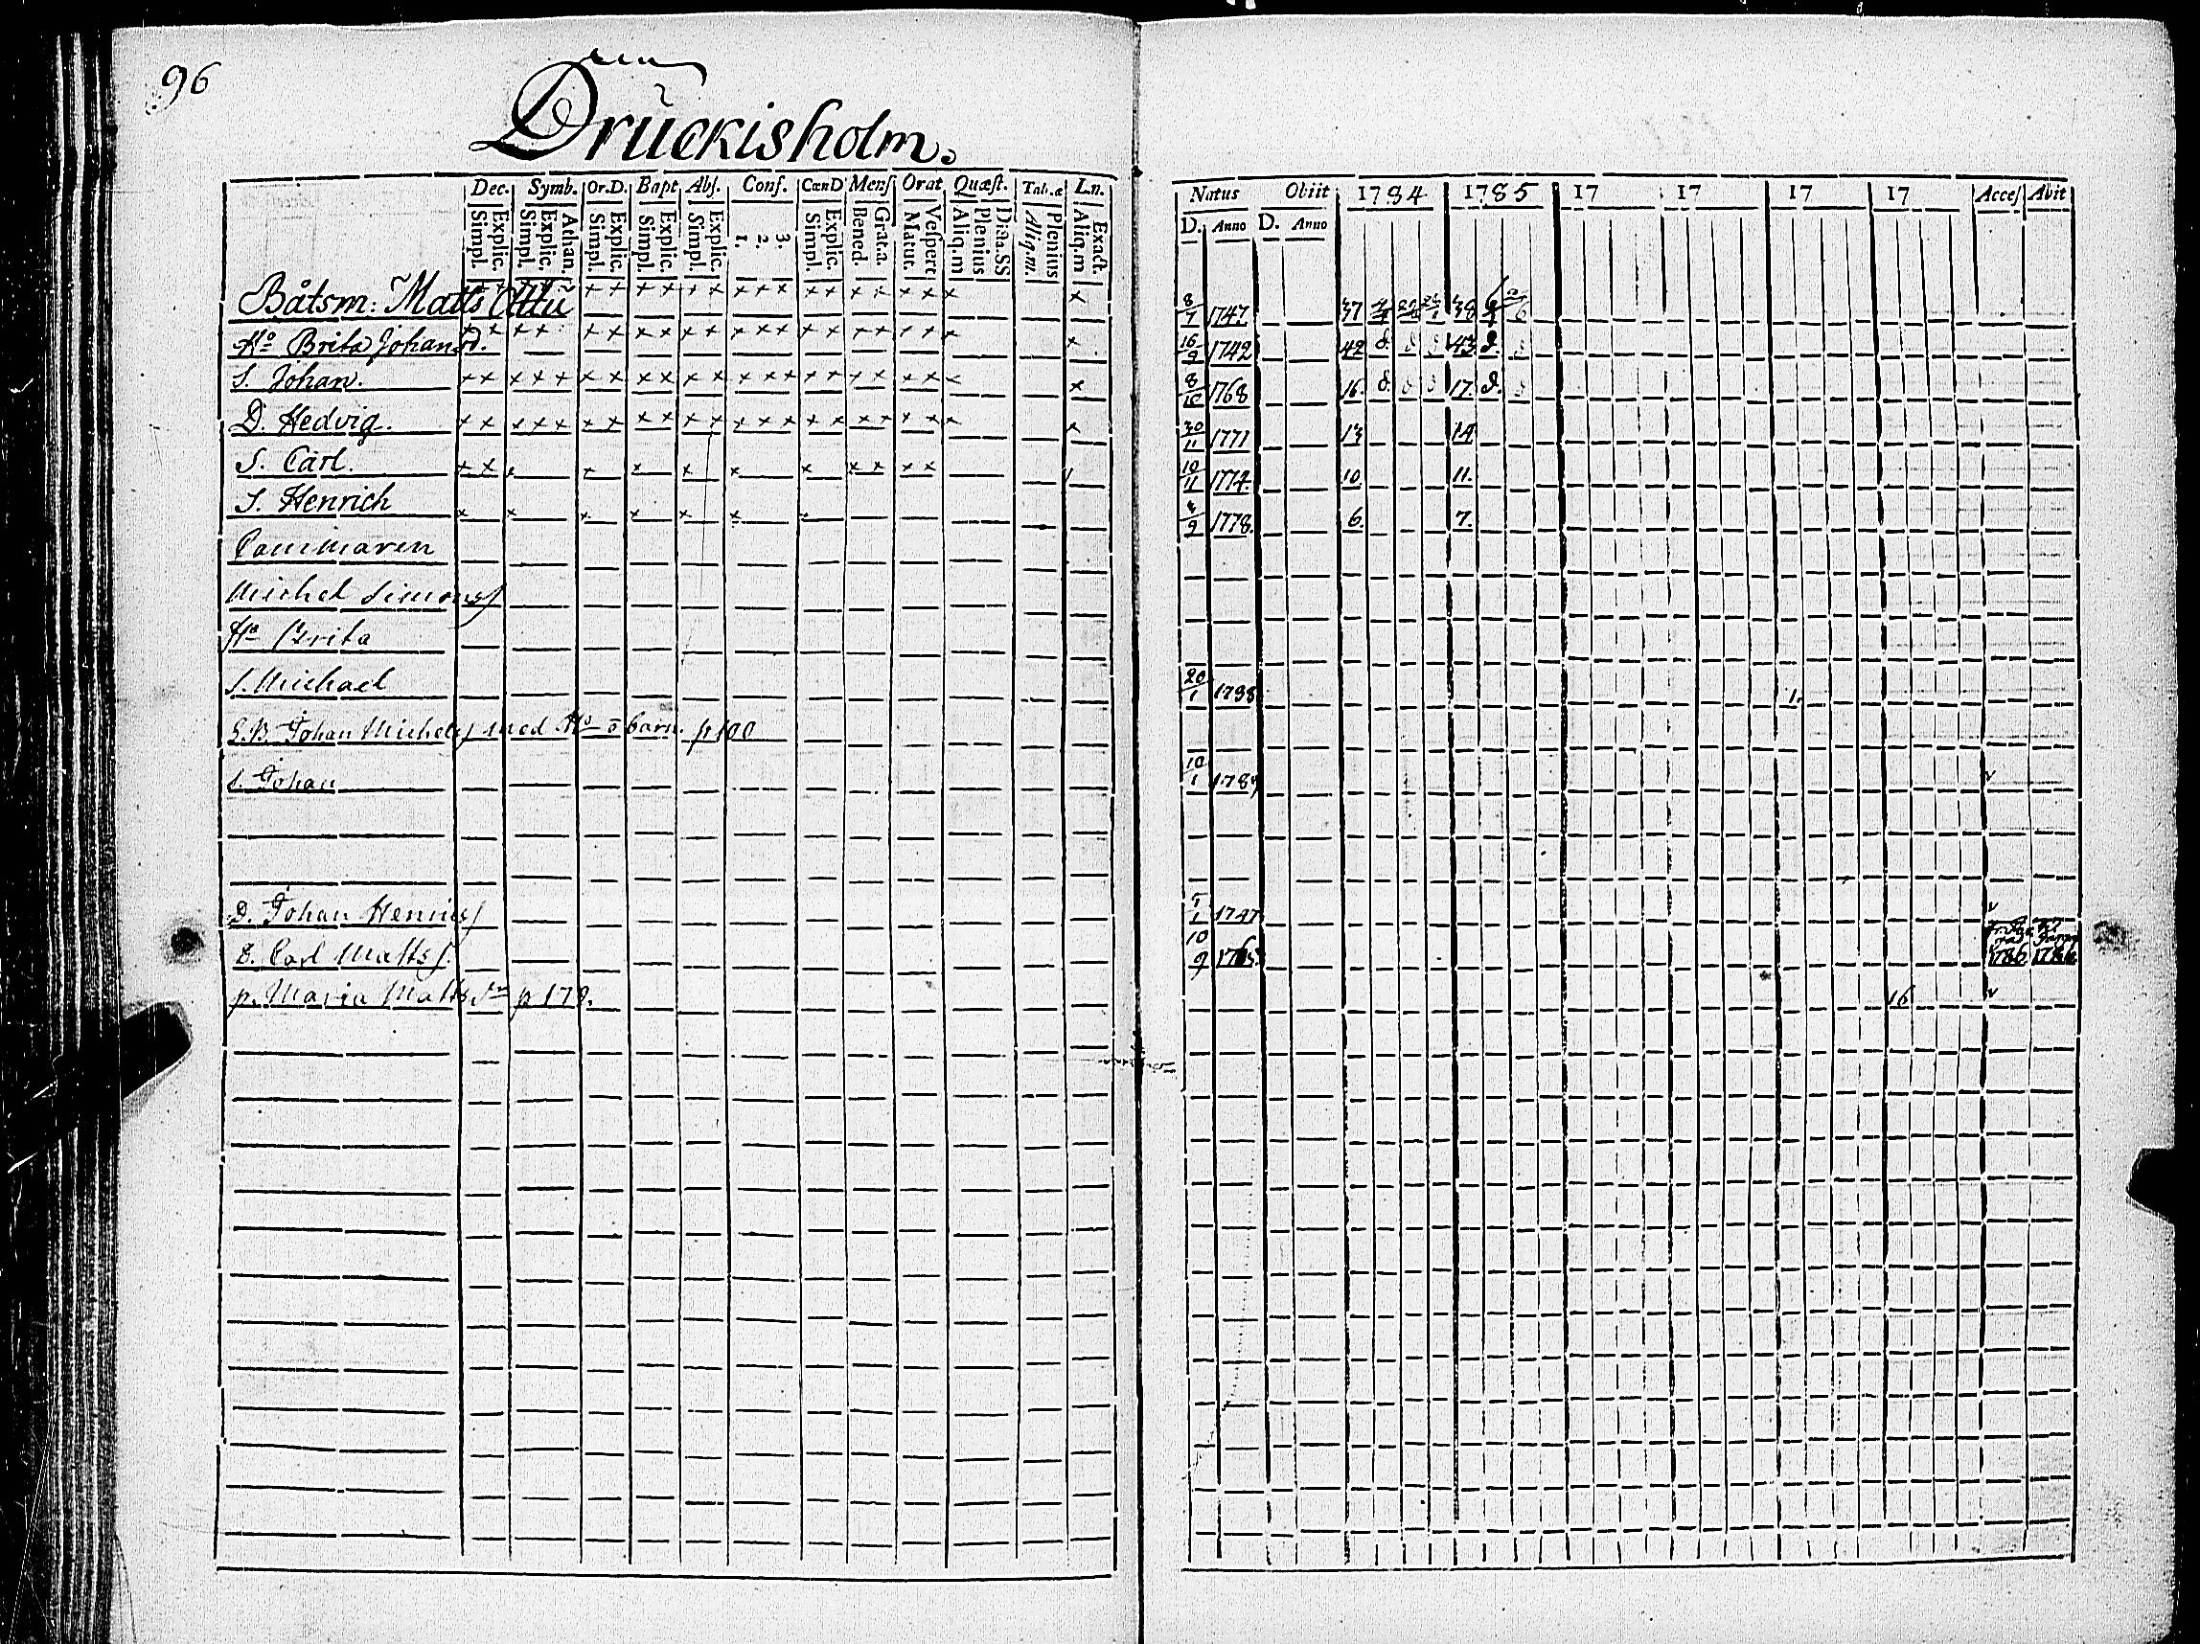 96
Druckisholm.
Dec. Symb. Or.D. Bapt Abs. Conf. CœnD Mens Orat Quæst. Tab.æ Ln.
Simpl. Explic. Simpl. Explic. Athan. Simpl. Explic. Simpl. Explic. Simpl. Explic. 1. 2. 3. Simpl. Explic. Bened. Grat.a. Matut. Vespert Aliq.m Plenius Dicta.SS Aliq.m. Plenius Aliq.m Exact.
Natus Obiit 1784 1785 17 17 17 17 Access Abit
D. Anno D. Anno
Båtsm: Matts x x x x x x x x x x x x x x x x x x 8/7 1747. 37 38
Ho Brita Johansd. x x x x x x x x x x x x x x x x x x x x 16/9 1742 42 43
S. Johan. x x x x x x x x x x x x x x x x x x x x x x x 8/10 1768 16. 17.
D. Hedvig. x x x x x x x x x x x x x x x x x x x x x x x 30/11 1771 13 14
S. Carl. x x x x x x x x x x x x 10/11 1774. 10 11.
S. Henrich x x x x x x x 4/9 1778. 6. 7.
Michel Simons
Ho Brita
S. Michael 20/1 1798 1.
G.B. Johan Michels med Ho o barn. p 100
S. Johan 10/1 1789 v
D. Johan Henrics 1747 v
D. Carl Matts. 10/9 1765 1786 1786
p. Maria Matts p 178. 16 v